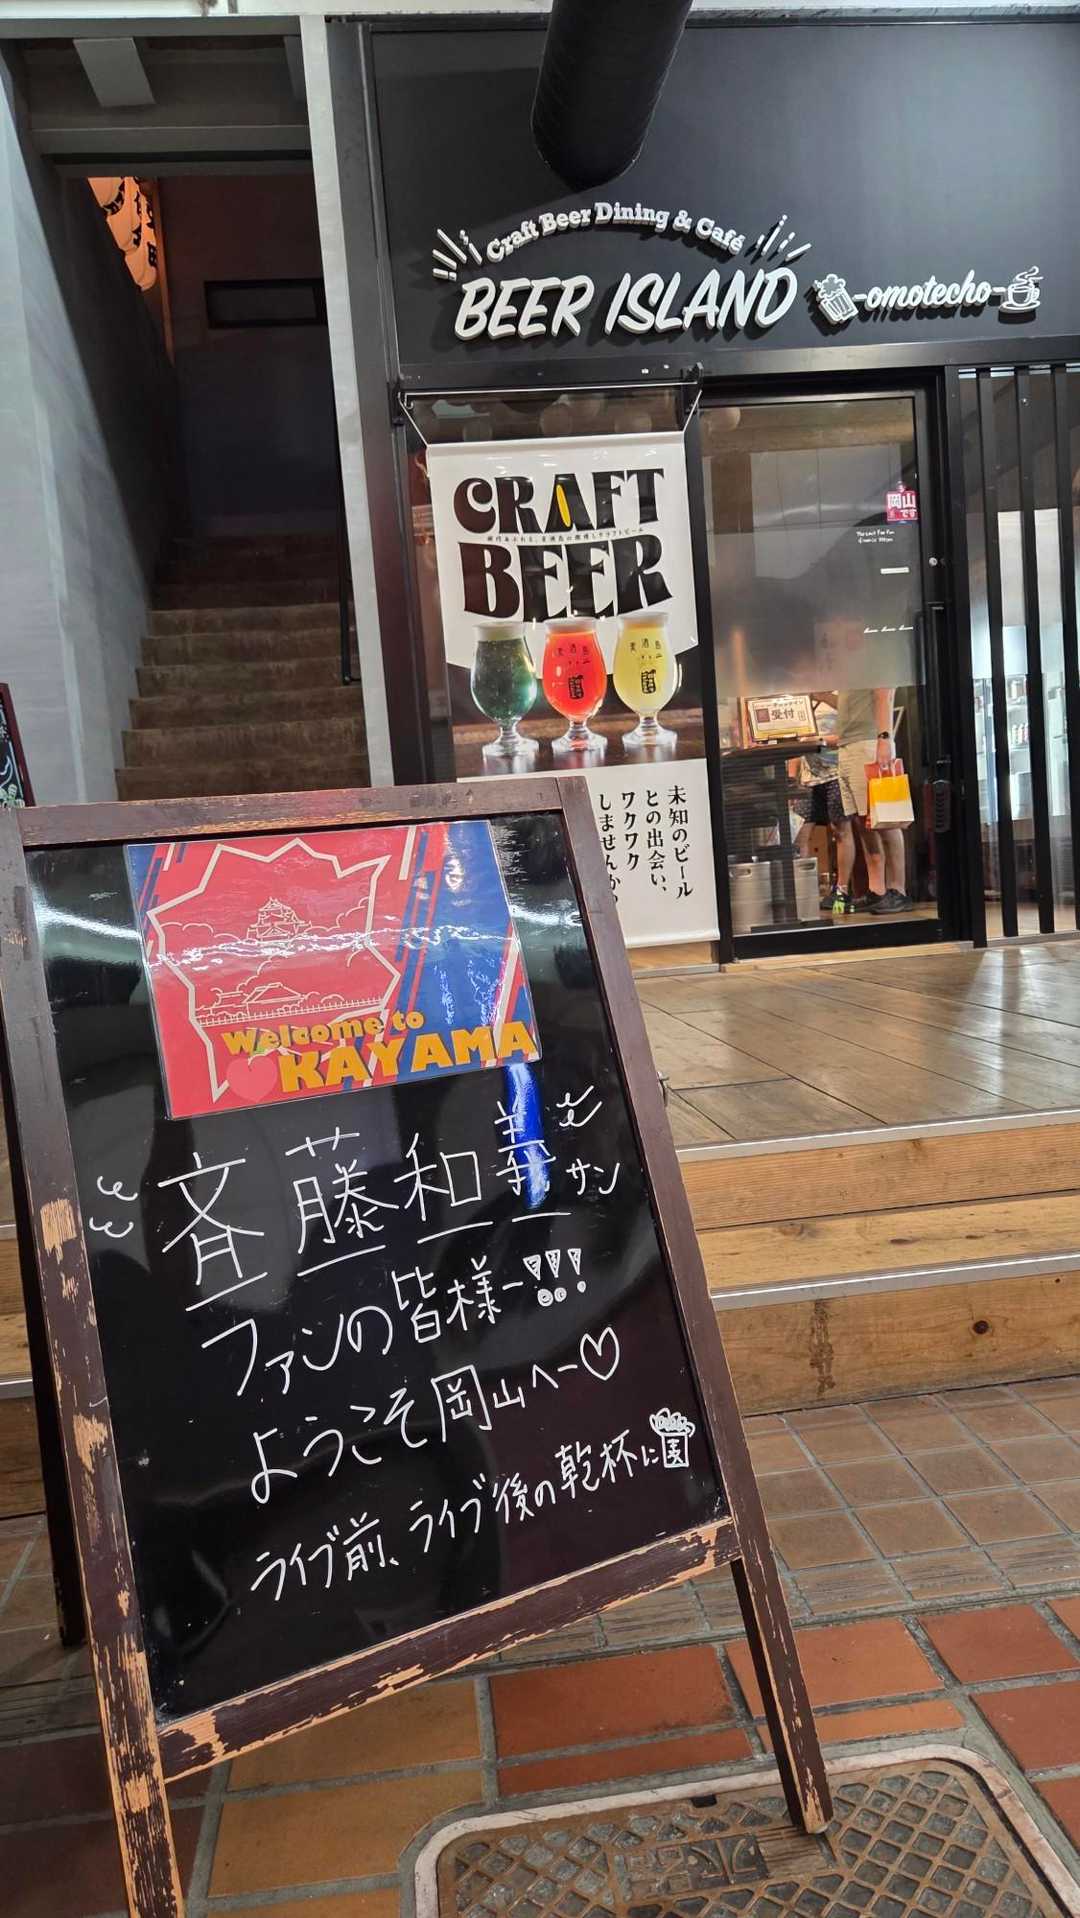 Craft Beer Dining & Café
BEER ISLAND -omotecho-
CRAFT
BEER
岡山
です
麦酒島
麦酒島
受付
未知のビール
との出会い、
ワクワク
しませんか
Welcome to
KAYAMA
斉藤和義サン
ファンの皆様ー!!!
ようこそ岡山へー♡
ライブ前、ライブ後の乾杯に
麦